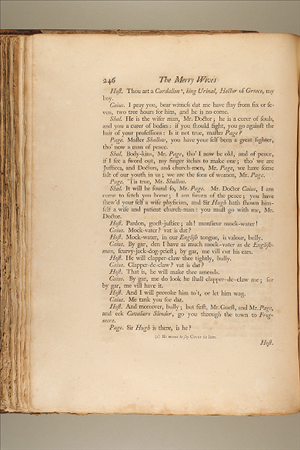 246 The Merry Wives
Host. Thou art a Castalion , king Urinal, Hector of Greece, my
boy.
Caius. I pray you, bear witness dat me have stay six or se-
ven, two tree hours for him, and he is no come.
Shal. He is the wiser man, Mr. Doctor; he is a curer of souls,
and you a curer of bodies: if you should fight, you go against the
hair of your professions: Is it not true, master Page?
Page. Master Shallow, you have your self been a great fighter,
tho' now a man of peace.
Shal. Body-kins, Mr. Page, tho' I now be old, and of peace,
if I see a sword out, my finger itches to make one; tho' we are
Justices, and Doctors, and church-men, Mr. Page, we have some
salt of our youth in us; we are the sons of women, Mr. Page.
Page. 'Tis true, Mr. Shallow.
Shal. It will be found so, Mr. Page. Mr. Doctor Caius, I am
come to fetch you home; I am sworn of the peace; you have
shew'd your self a wise physician, and Sir Hugh hath shown him-
self a wise and patient church-man: you must go with me, Mr.
Doctor.
Host. Pardon, guest-justice; ah! monsieur mock-water!
Caius. Mock-vater? vat is dat?
Host. Mock-water, in our English tongue, is valour, bully.
Caius. By gar, den I have as much mock-vater as de English-
man, scurvy-jack-dog-priest; by gar, me vill cut his ears.
Host. He will clapper-claw thee tightly, bully.
Caius. Clapper-de-claw? vat is dat?
Host. That is, he will make thee amends.
Caius. By gar, me do look he shall clapper-de-claw me; for
by gar, me vill have it.
Host. And I will provoke him to't, or let him wag.
Caius. Me tank you for dat.
Host. And moreover, bully; but first, Mr. Guest, and Mr. Page,
and eek Cavaliero Slender, go you through the town to Frog-
more.
Page. Sir Hugh is there, is he?
Host.